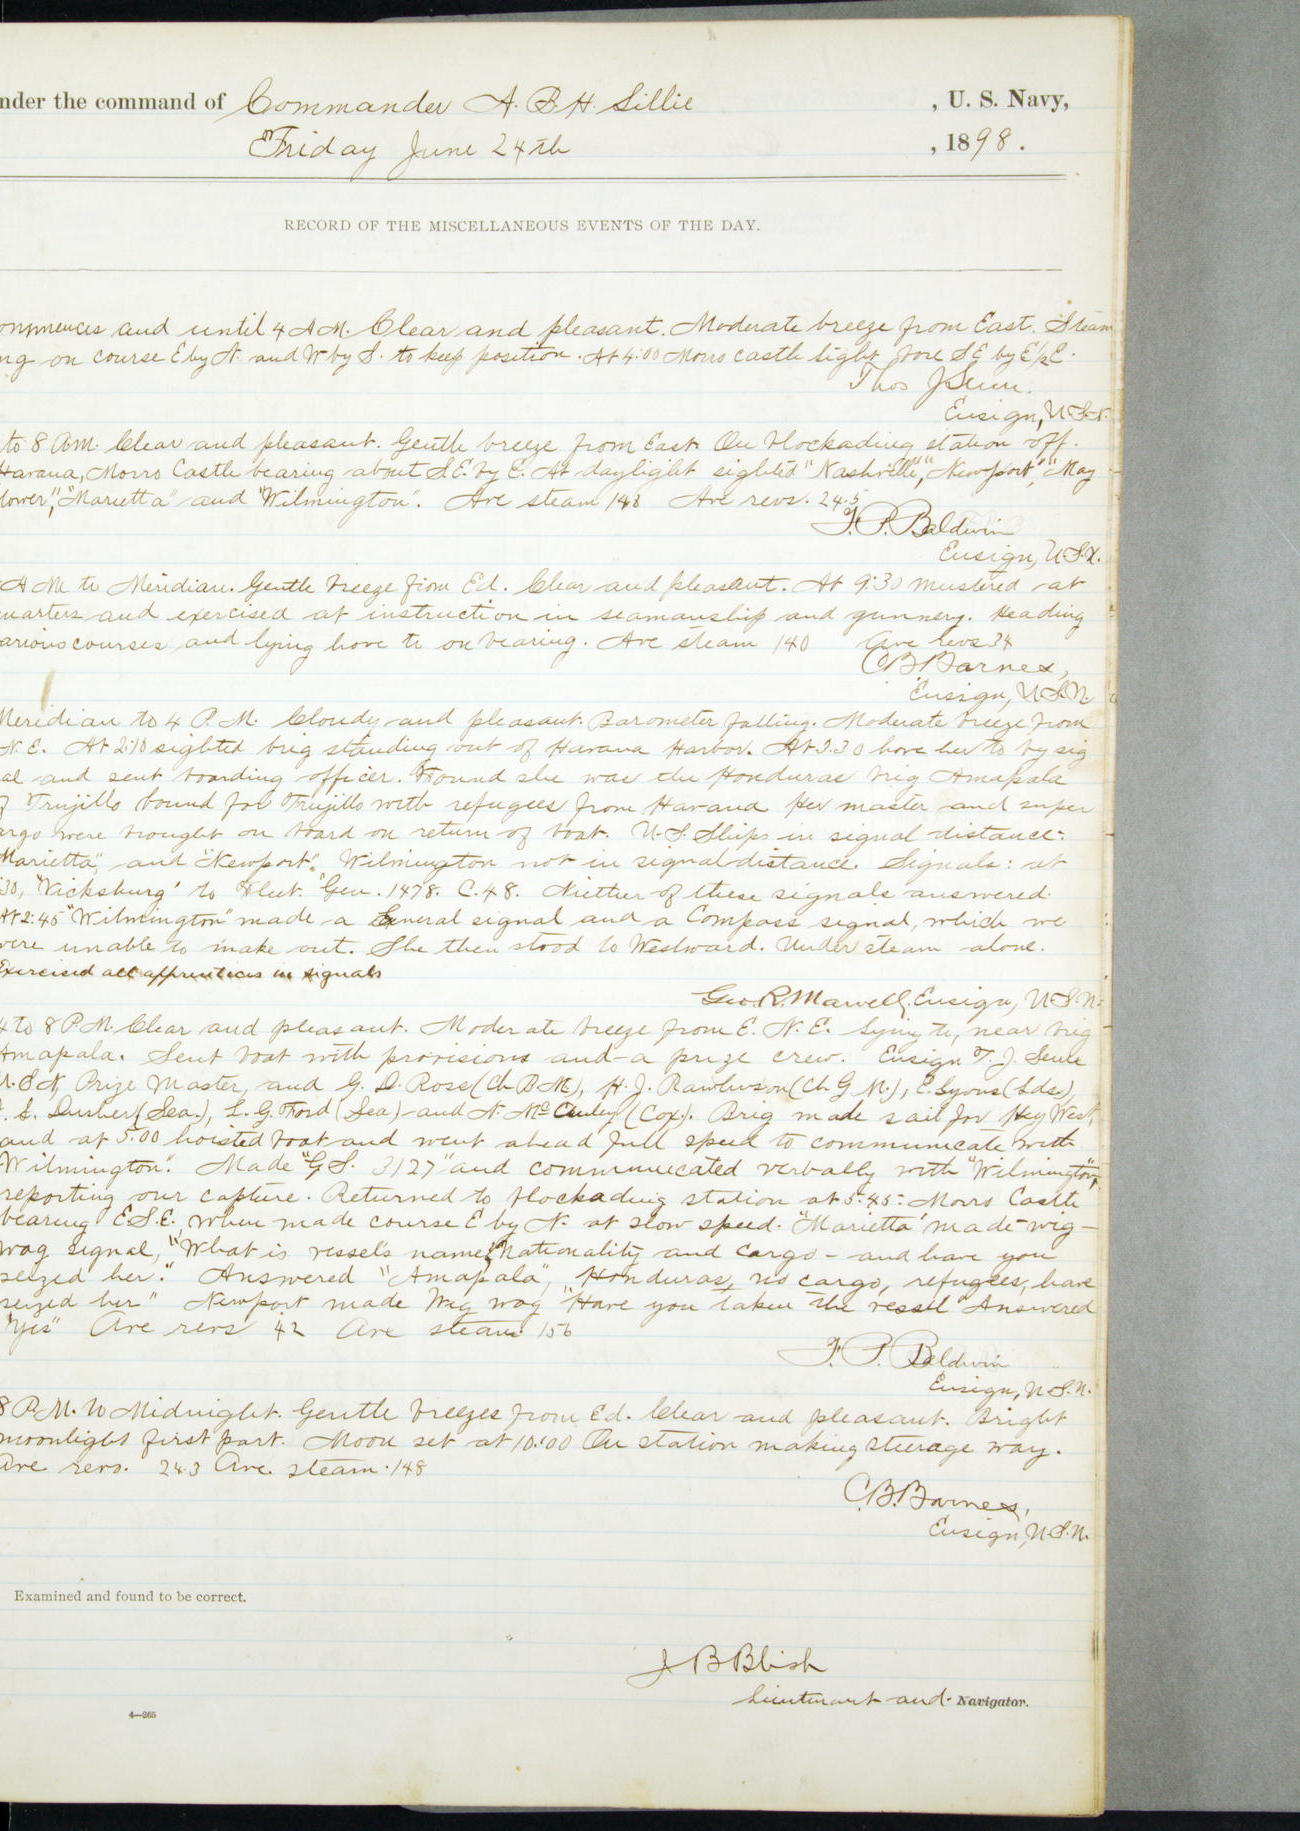 nder the command of Commander A. B. H. Lillie , U. S. Navy,
Friday June 24th , 1898.
RECORD OF THE MISCELLANEOUS EVENTS OF THE DAY.
ommences and until 4 A.M. Clear and pleasant. Moderate breeze from East. Steam
ng on course E by N. and W by S. to keep position. At 4:00 Morro castle light bore S E by E 1/2 E.
Thos J Senn.
Ensign, U.S.N.
to 8 A.M. Clear and pleasant. Gentle breeze from East. On blockading station off.
Havana, Morro Castle bearing about S.E. by E. At daylight sighted "Nashville", "Newport", "May
lower", "Marietta" and "Wilmington". Ave steam 148 Ave revs. 24.5
F. P. Baldwin
Ensign, U.S.N.
A M to Meridian. Gentle breeze from Ed. Clear and pleasant. At 9:30 mustered at
uarters and exercised at instruction in seamanship and gunnery. Heading
arious courses and lying hove to on bearing. Ave steam 140 Ave revs 34
C B Barnes,
Ensign, U.S.N.
Meridian to 4 P.M. Cloudy and pleasant. Barometer falling. Moderate breeze from
N. E. At 2:10 sighted brig standing out of Havana Harbor. At 3.30 hove her to by sig
al and sent boarding officer. Found she was the Honduras brig Amapala
f Trujillo bound for Trujillo with refugees from Havana Her master and super
argo were brought on board on return of boat. U.S. Ships in signal distance:
Marietta", and "Newport". Wilmington not in signal distance. Signals: at
30, "Vicksburg" to Fleet. Gen. 1478. C. 48. Niether of these signals answered.
At 2:45 "Wilmington" made a General signal and a Compass signal, which we
were unable to make out. She then stood to Westward. Under steam alone.
Exercised all apprentices in signals
Geo. R. Marvell, Ensign, U.S.N.
4 to 8 P.M. Clear and pleasant. Moderate breeze from E. N. E. Lying to, near brig
Amapala. Sent boat with provisions and a prize crew. Ensign T. J. Senn
U.S.N, Prize Master, and G. D. Ross (Ch B M), H. J. Rawlinson (Ch G M.), E. Lyons (Lds.),
S. (Sea.), L. G. Ford (Sea) and N. Mc (Cox). Brig made sail for Key West,
and at 5.00 hoisted boat and went ahead full speed to communicate with
Wilmington". Made "G S. 3127" and communicated verbally with "Wilmington",
reporting our capture. Returned to blockading station at 5:45: Morro Castle
bearing E.S.E. when made course E by N. at slow speed. "Marietta" made wig-
wag signal, "What is vessels name, Nationality and cargo - and have you
seized her." Answered "Amapala", Honduras, no cargo, refugees, have
seized her" Newport made Wig wag "Have you taken the vessel" Answered
"Yes" Ave revs 42 Ave steam 156
F. P. Baldwin
Ensign, U.S.N.
8 P.M. to Midnight. Gentle breezes from Ed. Clear and pleasant. Bright
moonlight first part. Moon set at 10:00 On station making steerage way.
Ave revs. 24.3 Ave. steam. 148
C. B. Barnes,
Ensign, U.S.N.
Examined and found to be correct.
J B Blish
Lieutenant and Navigator.
4—265